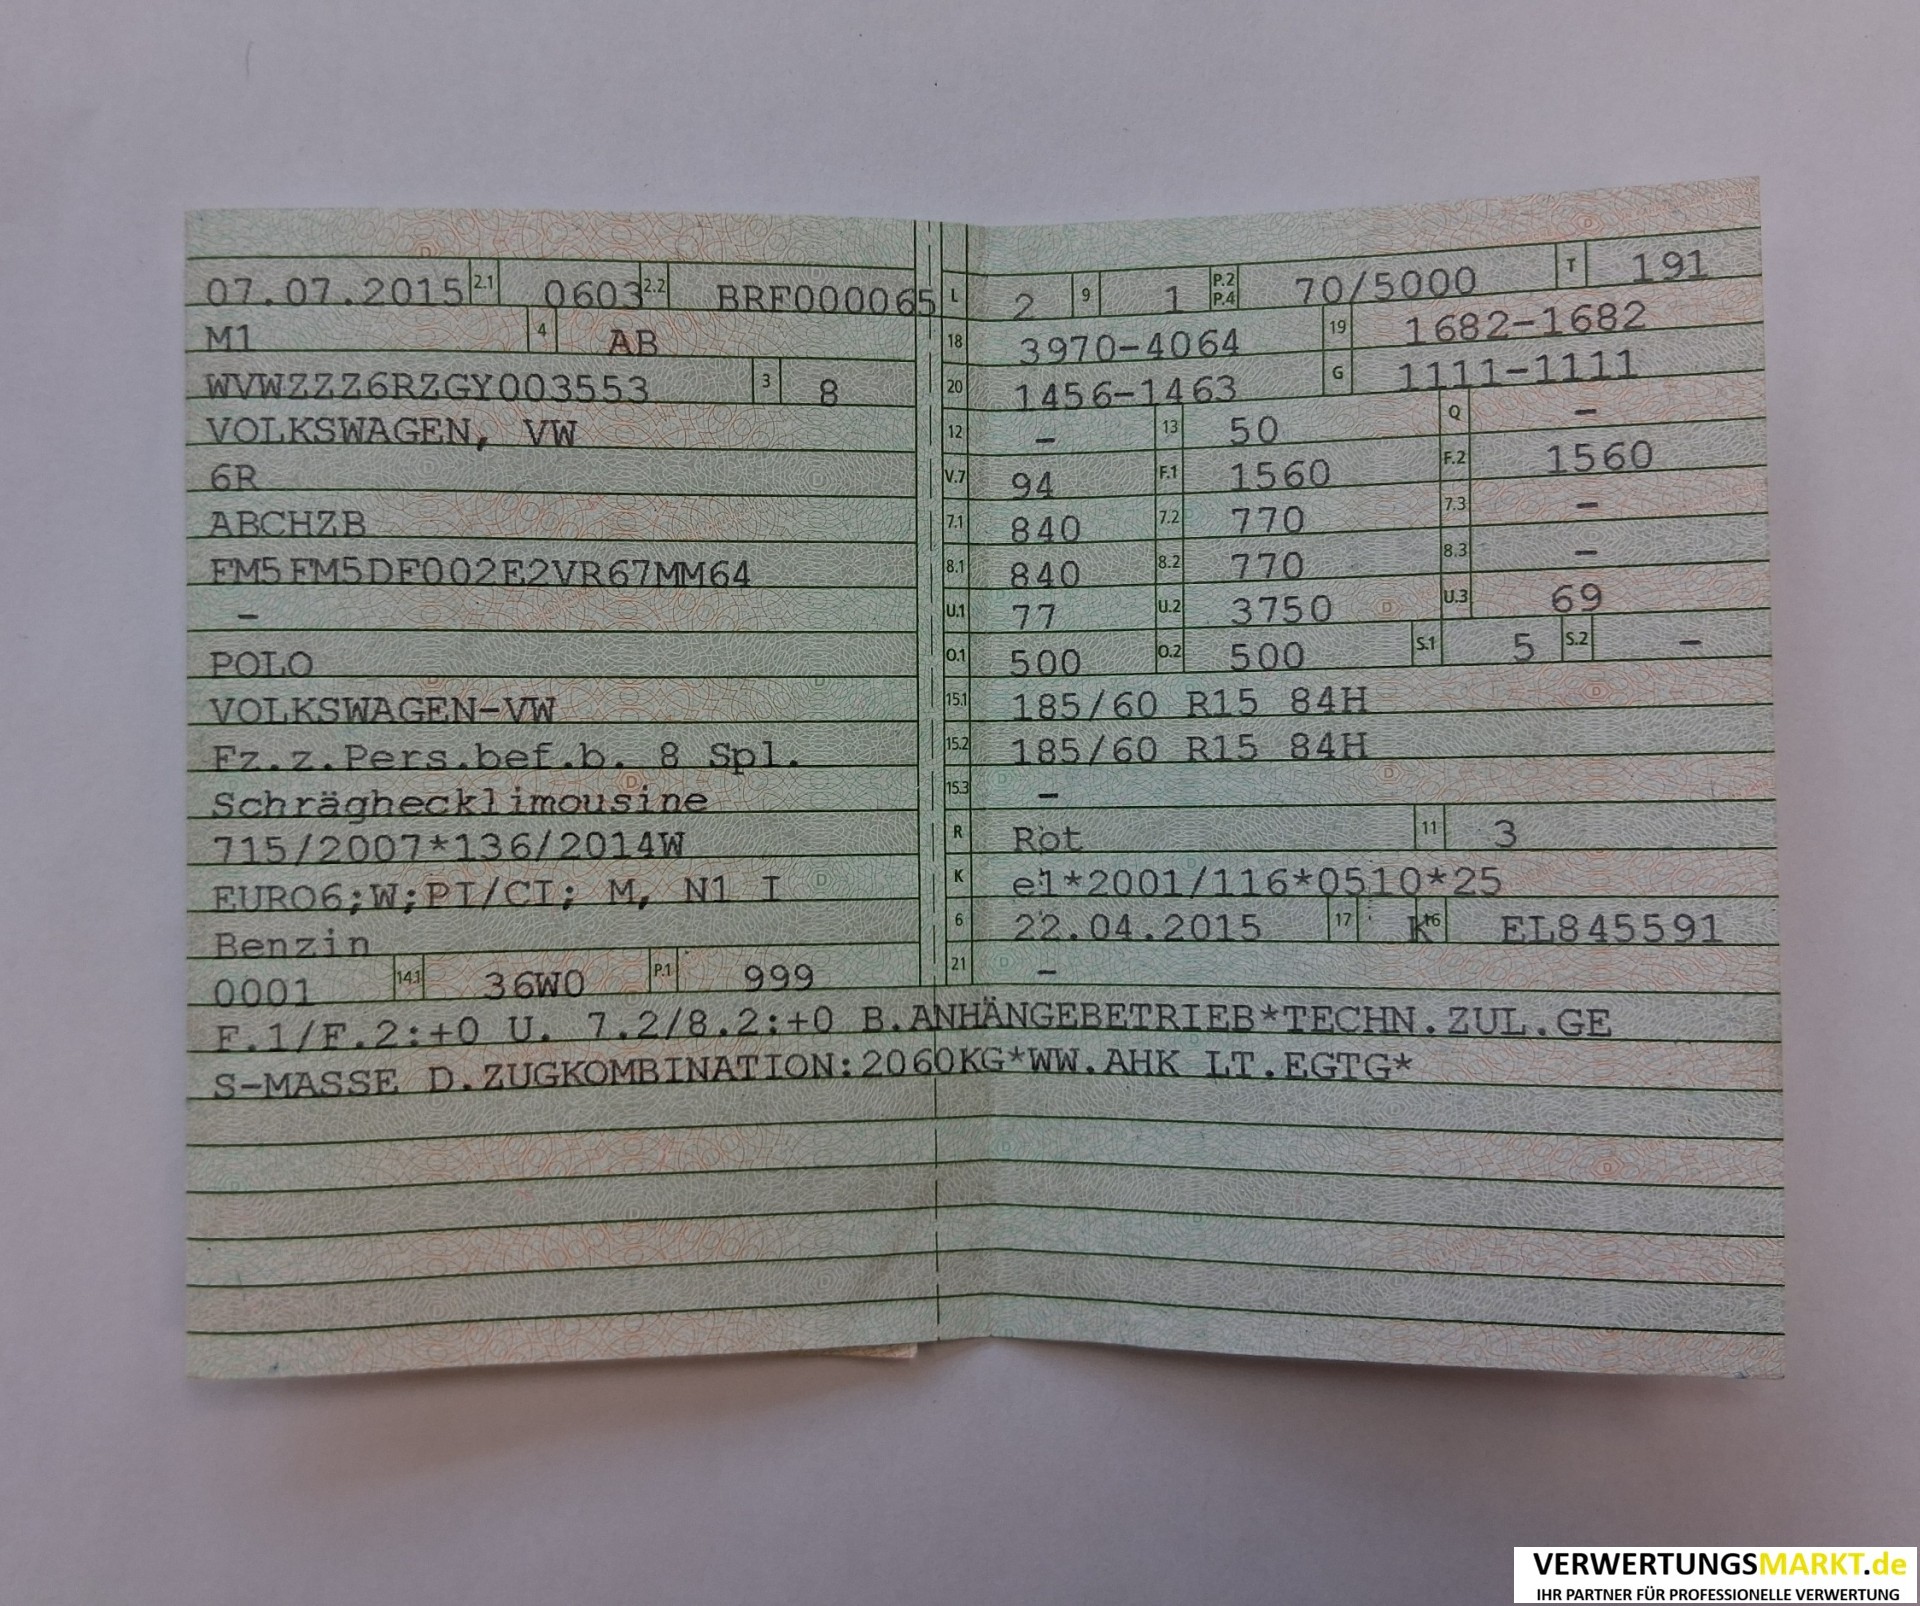 07.07.2015 2.1 0603 2.2 BRF000065
M1 4 AB
WVWZZZ6RZGY003553 3 8
VOLKSWAGEN, VW
6R
ABCHZB
FM5FM5DF002E2VR67MM64
–
POLO
VOLKSWAGEN-VW
Fz.z.Pers.bef.b. 8 Spl.
Schräghecklimousine
715/2007*136/2014W
EURO6;W;PI/CI; M, N1 I
Benzin
0001 14.1 36W0 P.1 999
L 2 9 1 P.2 P.4 70/5000 T 191
18 3970-4064 19 1682-1682
20 1456-1463 G 1111-1111
12 – 13 50 Q –
V.7 94 F.1 1560 F.2 1560
7.1 840 7.2 770 7.3 –
8.1 840 8.2 770 8.3 –
U.1 77 U.2 3750 U.3 69
O.1 500 O.2 500 S.1 5 S.2 –
15.1 185/60 R15 84H
15.2 185/60 R15 84H
15.3 –
R Rot 11 3
K e1*2001/116*0510*25
6 22.04.2015 17 K 16 EL845591
21 –
F.1/F.2:+0 U. 7.2/8.2:+0 B.ANHÄNGEBETRIEB*TECHN.ZUL.GE
S-MASSE D.ZUGKOMBINATION:2060KG*WW.AHK LT.EGTG*
VERWERTUNGSMARKT.de
IHR PARTNER FÜR PROFESSIONELLE VERWERTUNG